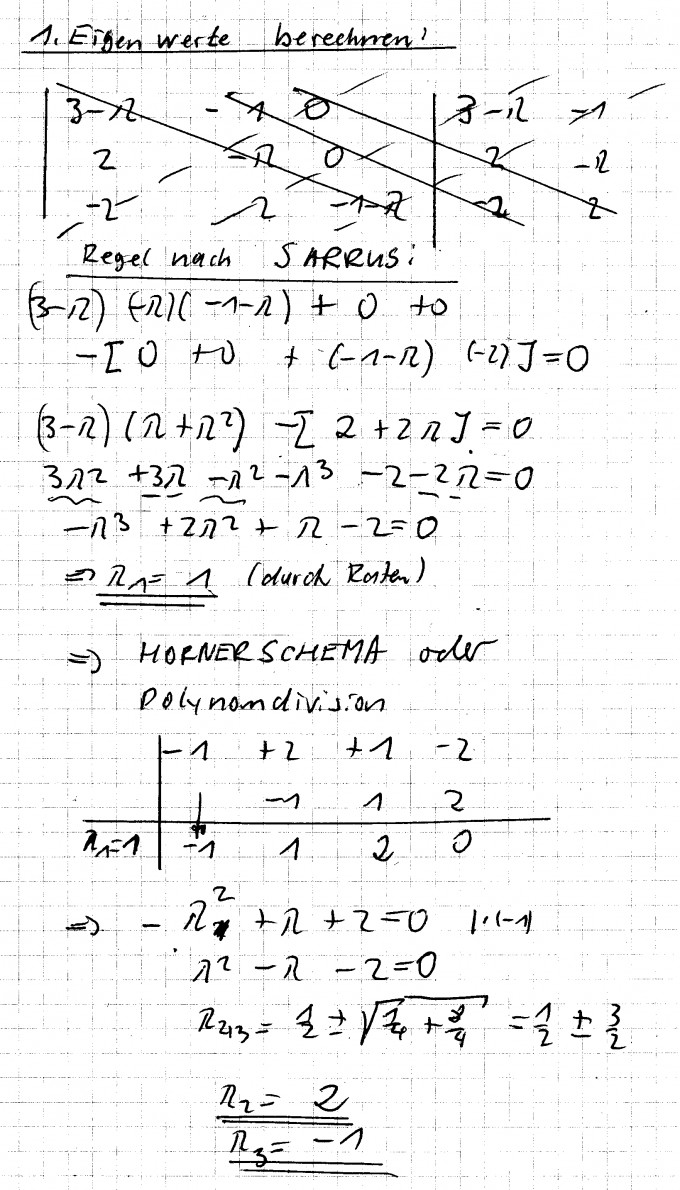 1. Eigenwerte berechnen:
| 3-λ -1 0 | 3-λ -1
| 2 -λ 0 | 2 -λ
| -2 2 -1-λ | -2 2
Regel nach SARRUS:
(3-λ) (-λ)(-1-λ) + 0 +0
-[ 0 +0 + (-1-λ) (-2) ] = 0
(3-λ) (λ+λ²) -[ 2 + 2λ ] = 0
3λ² +3λ -λ² -λ³ -2 -2λ = 0
-λ³ +2λ² + λ - 2 = 0
⇒ λ₁ = 1 (durch Raten)
⇒ HORNERSCHEMA oder
Polynomdivision
| -1 +2 +1 -2
| ↓ -1 1 2
λ₁=1 | -1 1 2 0
⇒ - λ² + λ + 2 = 0 |·(-1)
λ² - λ - 2 = 0
λ₂,₃ = 1/2 ± √(1/4 + 8/4) = 1/2 ± 3/2
λ₂ = 2
λ₃ = -1